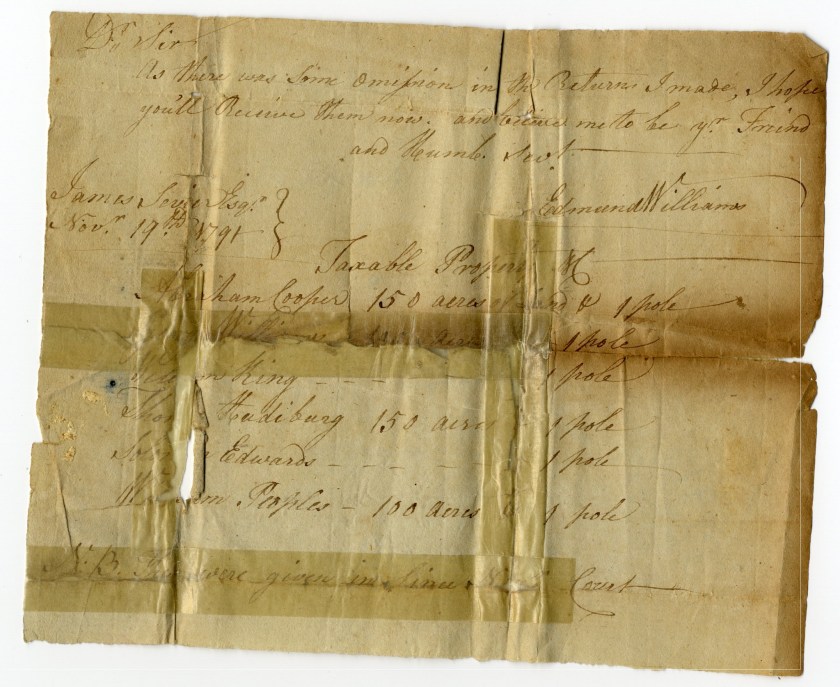 Dr Sir
As there was some omission in the Returns I made, I hope
you'll Receive them now. and believe me to be yr. Freind
and Humb. Servt.
James Sevier Esqr.
Novr. 19th 1791
Edmund Williams
Taxable Property
Abraham Cooper 150 acres of Land & 1 pole
Williams 1 pole
King - - 1 pole
Thos Hudiburg 150 acres 1 pole
Edwards - - - - 1 pole
William Peoples - 100 acres & 1 pole
N.B. were given in since Court